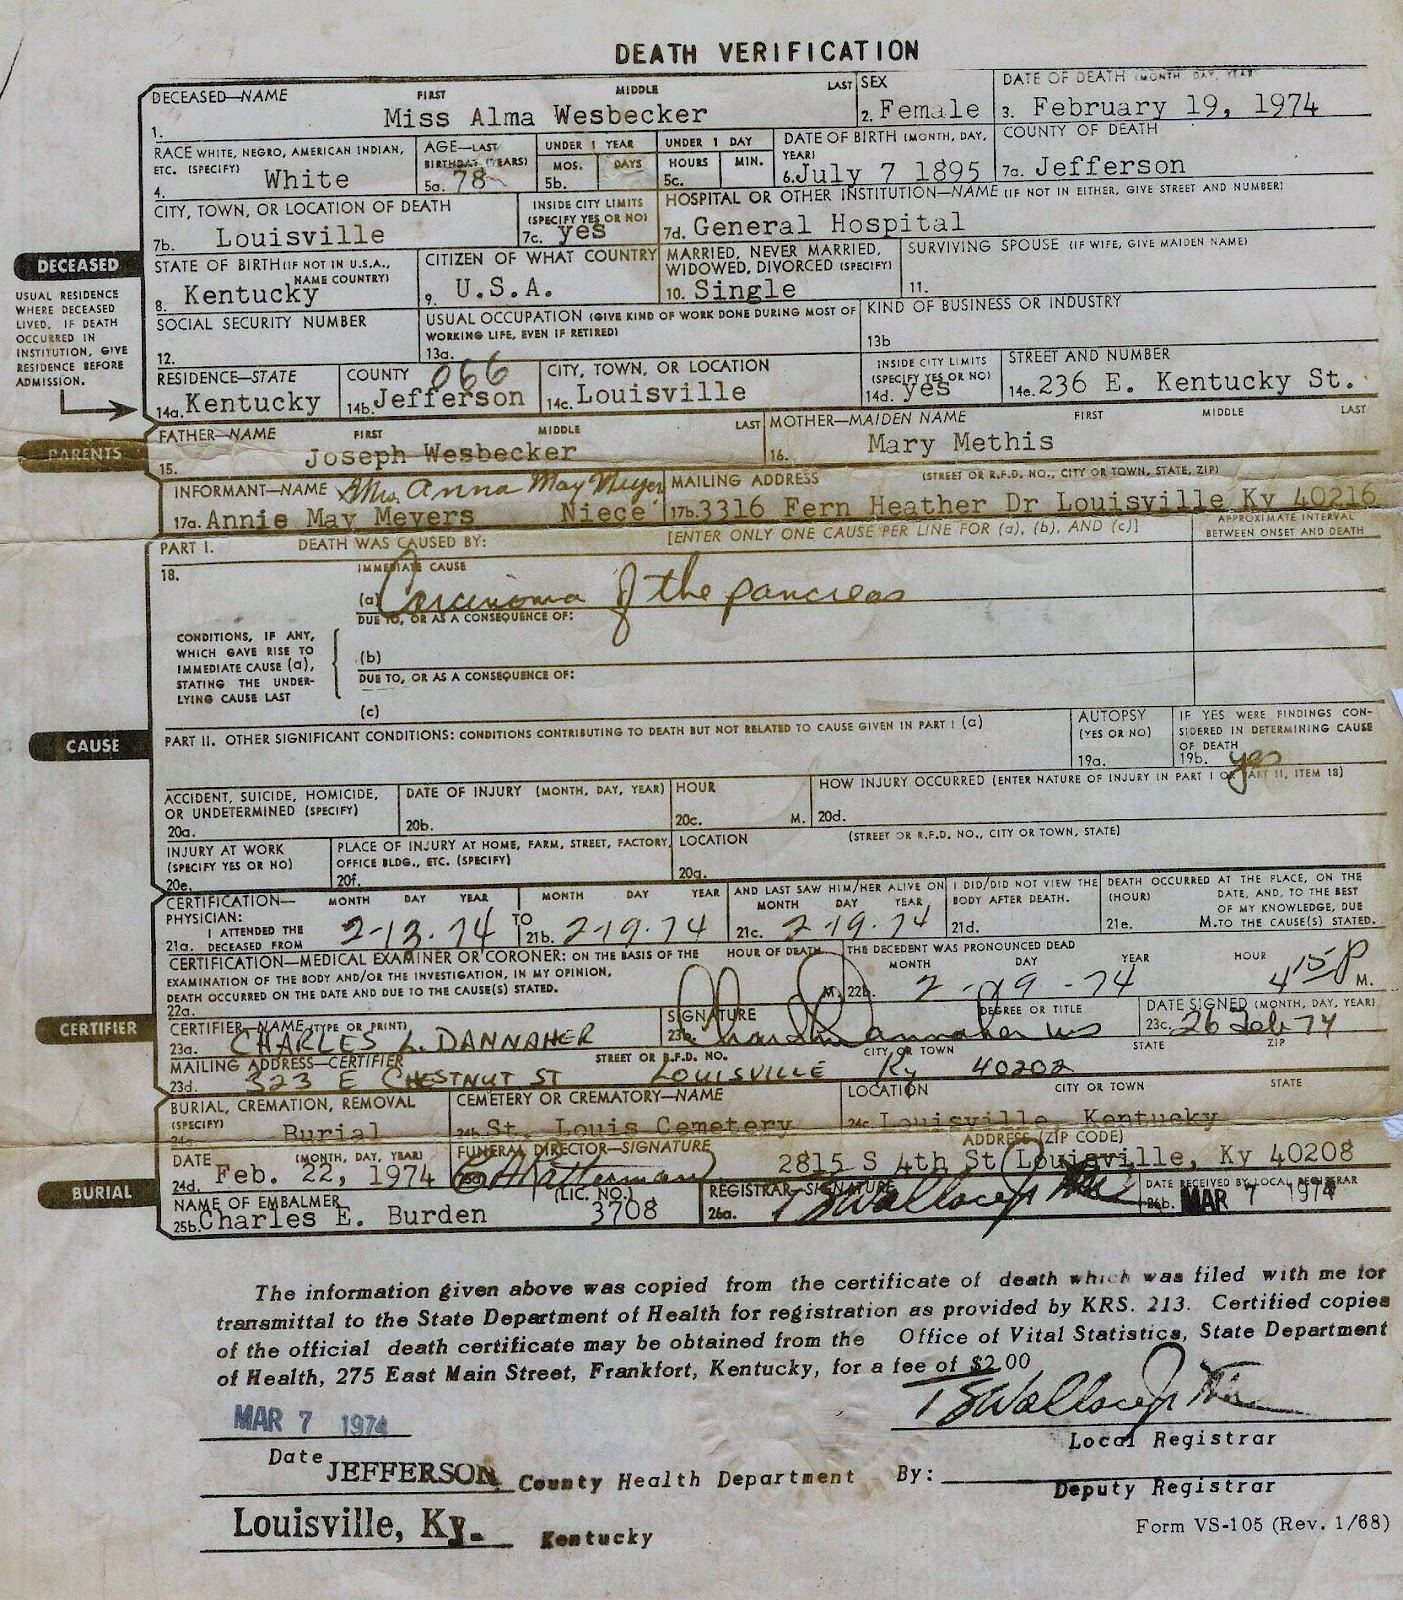 DEATH VERIFICATION
DECEASED—NAME FIRST MIDDLE LAST
1. Miss Alma Wesbecker
SEX
2. Female
DATE OF DEATH (MONTH, DAY, YEAR)
3. February 19, 1974
RACE WHITE, NEGRO, AMERICAN INDIAN,
ETC. (SPECIFY)
4. White
AGE—LAST
BIRTHDAY (YEARS)
5a. 78
UNDER 1 YEAR
MOS. DAYS
5b.
UNDER 1 DAY
HOURS MIN.
5c.
DATE OF BIRTH (MONTH, DAY,
YEAR)
6. July 7 1895
COUNTY OF DEATH
7a. Jefferson
CITY, TOWN, OR LOCATION OF DEATH
7b. Louisville
INSIDE CITY LIMITS
(SPECIFY YES OR NO)
7c. yes
HOSPITAL OR OTHER INSTITUTION—NAME (IF NOT IN EITHER, GIVE STREET AND NUMBER)
7d. General Hospital
DECEASED
USUAL RESIDENCE
WHERE DECEASED
LIVED. IF DEATH
OCCURRED IN
INSTITUTION, GIVE
RESIDENCE BEFORE
ADMISSION.
STATE OF BIRTH (IF NOT IN U.S.A.,
NAME COUNTRY)
8. Kentucky
CITIZEN OF WHAT COUNTRY
9. U.S.A.
MARRIED, NEVER MARRIED,
WIDOWED, DIVORCED (SPECIFY)
10. Single
SURVIVING SPOUSE (IF WIFE, GIVE MAIDEN NAME)
11.
SOCIAL SECURITY NUMBER
12.
USUAL OCCUPATION (GIVE KIND OF WORK DONE DURING MOST OF
WORKING LIFE, EVEN IF RETIRED)
13a.
KIND OF BUSINESS OR INDUSTRY
13b
RESIDENCE—STATE
14a. Kentucky
COUNTY 066
14b. Jefferson
CITY, TOWN, OR LOCATION
14c. Louisville
INSIDE CITY LIMITS
(SPECIFY YES OR NO)
14d. yes
STREET AND NUMBER
14e. 236 E. Kentucky St.
PARENTS
FATHER—NAME FIRST MIDDLE LAST
15. Joseph Wesbecker
MOTHER—MAIDEN NAME FIRST MIDDLE LAST
16. Mary Methis
INFORMANT—NAME Mrs. Anna May Meyer
17a. Annie May Meyers Niece
MAILING ADDRESS (STREET OR R.F.D. NO., CITY OR TOWN, STATE, ZIP)
17b. 3316 Fern Heather Dr Louisville Ky 40216
PART I. DEATH WAS CAUSED BY: [ENTER ONLY ONE CAUSE PER LINE FOR (a), (b), AND (c)]
APPROXIMATE INTERVAL
BETWEEN ONSET AND DEATH
18. IMMEDIATE CAUSE
(a) Carcinoma of the pancreas
DUE TO, OR AS A CONSEQUENCE OF:
CONDITIONS, IF ANY,
WHICH GAVE RISE TO
IMMEDIATE CAUSE (a),
STATING THE UNDER-
LYING CAUSE LAST
(b)
DUE TO, OR AS A CONSEQUENCE OF:
(c)
CAUSE
PART II. OTHER SIGNIFICANT CONDITIONS: CONDITIONS CONTRIBUTING TO DEATH BUT NOT RELATED TO CAUSE GIVEN IN PART I (a)
AUTOPSY
(YES OR NO)
19a.
IF YES WERE FINDINGS CON-
SIDERED IN DETERMINING CAUSE
OF DEATH
19b. yes
ACCIDENT, SUICIDE, HOMICIDE,
OR UNDETERMINED (SPECIFY)
20a.
DATE OF INJURY (MONTH, DAY, YEAR)
20b.
HOUR
20c. M.
HOW INJURY OCCURRED (ENTER NATURE OF INJURY IN PART I OR PART II, ITEM 18)
20d.
INJURY AT WORK
(SPECIFY YES OR NO)
20e.
PLACE OF INJURY AT HOME, FARM, STREET, FACTORY,
OFFICE BLDG., ETC. (SPECIFY)
20f.
LOCATION (STREET OR R.F.D. NO., CITY OR TOWN, STATE)
20g.
CERTIFICATION— MONTH DAY YEAR
PHYSICIAN:
I ATTENDED THE
21a. DECEASED FROM 2-13-74
TO MONTH DAY YEAR
21b. 2-19-74
AND LAST SAW HIM/HER ALIVE ON
MONTH DAY YEAR
21c. 2-19-74
I DID/DID NOT VIEW THE
BODY AFTER DEATH.
21d.
DEATH OCCURRED AT THE PLACE, ON THE
(HOUR) DATE, AND, TO THE BEST
OF MY KNOWLEDGE, DUE
21e. M. TO THE CAUSE(S) STATED.
CERTIFICATION—MEDICAL EXAMINER OR CORONER: ON THE BASIS OF THE
EXAMINATION OF THE BODY AND/OR THE INVESTIGATION, IN MY OPINION,
DEATH OCCURRED ON THE DATE AND DUE TO THE CAUSE(S) STATED.
22a.
HOUR OF DEATH
M.
THE DECEDENT WAS PRONOUNCED DEAD
MONTH DAY YEAR HOUR
22b. 2-19-74 4 15 P M.
CERTIFIER
CERTIFIER—NAME (TYPE OR PRINT)
23a. CHARLES L. DANNAHER
SIGNATURE DEGREE OR TITLE
23b.
DATE SIGNED (MONTH, DAY, YEAR)
23c. 26 Feb 74
MAILING ADDRESS—CERTIFIER STREET OR R.F.D. NO. CITY OR TOWN STATE ZIP
23d. 323 E CHESTNUT ST LOUISVILLE Ky 40202
BURIAL, CREMATION, REMOVAL
(SPECIFY)
24a. Burial
CEMETERY OR CREMATORY—NAME
24b. St. Louis Cemetery
LOCATION CITY OR TOWN STATE
24c. Louisville, Kentucky
BURIAL
DATE (MONTH, DAY, YEAR)
24d. Feb. 22, 1974
FUNERAL DIRECTOR—SIGNATURE
Ratterman
ADDRESS (ZIP CODE)
2815 S 4th St Louisville, Ky 40208
NAME OF EMBALMER (LIC. NO.)
25b. Charles E. Burden 3708
REGISTRAR—SIGNATURE
26a.
DATE RECEIVED BY LOCAL REGISTRAR
26b. MAR 7 1974
The information given above was copied from the certificate of death which was filed with me for
transmittal to the State Department of Health for registration as provided by KRS. 213. Certified copies
of the official death certificate may be obtained from the Office of Vital Statistics, State Department
of Health, 275 East Main Street, Frankfort, Kentucky, for a fee of $2.00
MAR 7 1974
Date
Local Registrar
JEFFERSON County Health Department By:
Deputy Registrar
Louisville, Ky. Kentucky
Form VS-105 (Rev. 1/68)